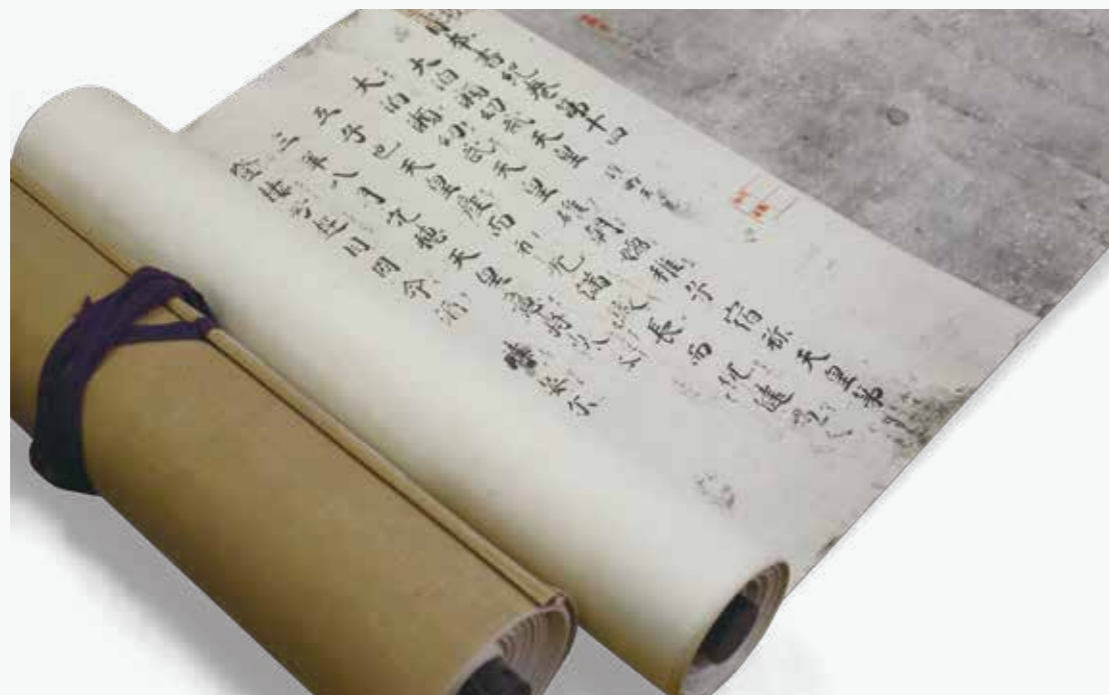 日本書紀巻第十四
大泊瀬幼武天皇
大泊瀬幼武天皇雄朝嬬稚子宿祢天皇第
五子也天皇産而神光満殿長而伉健過人
三年八月穴穂天皇意将沐
登楼兮遊目因命酒